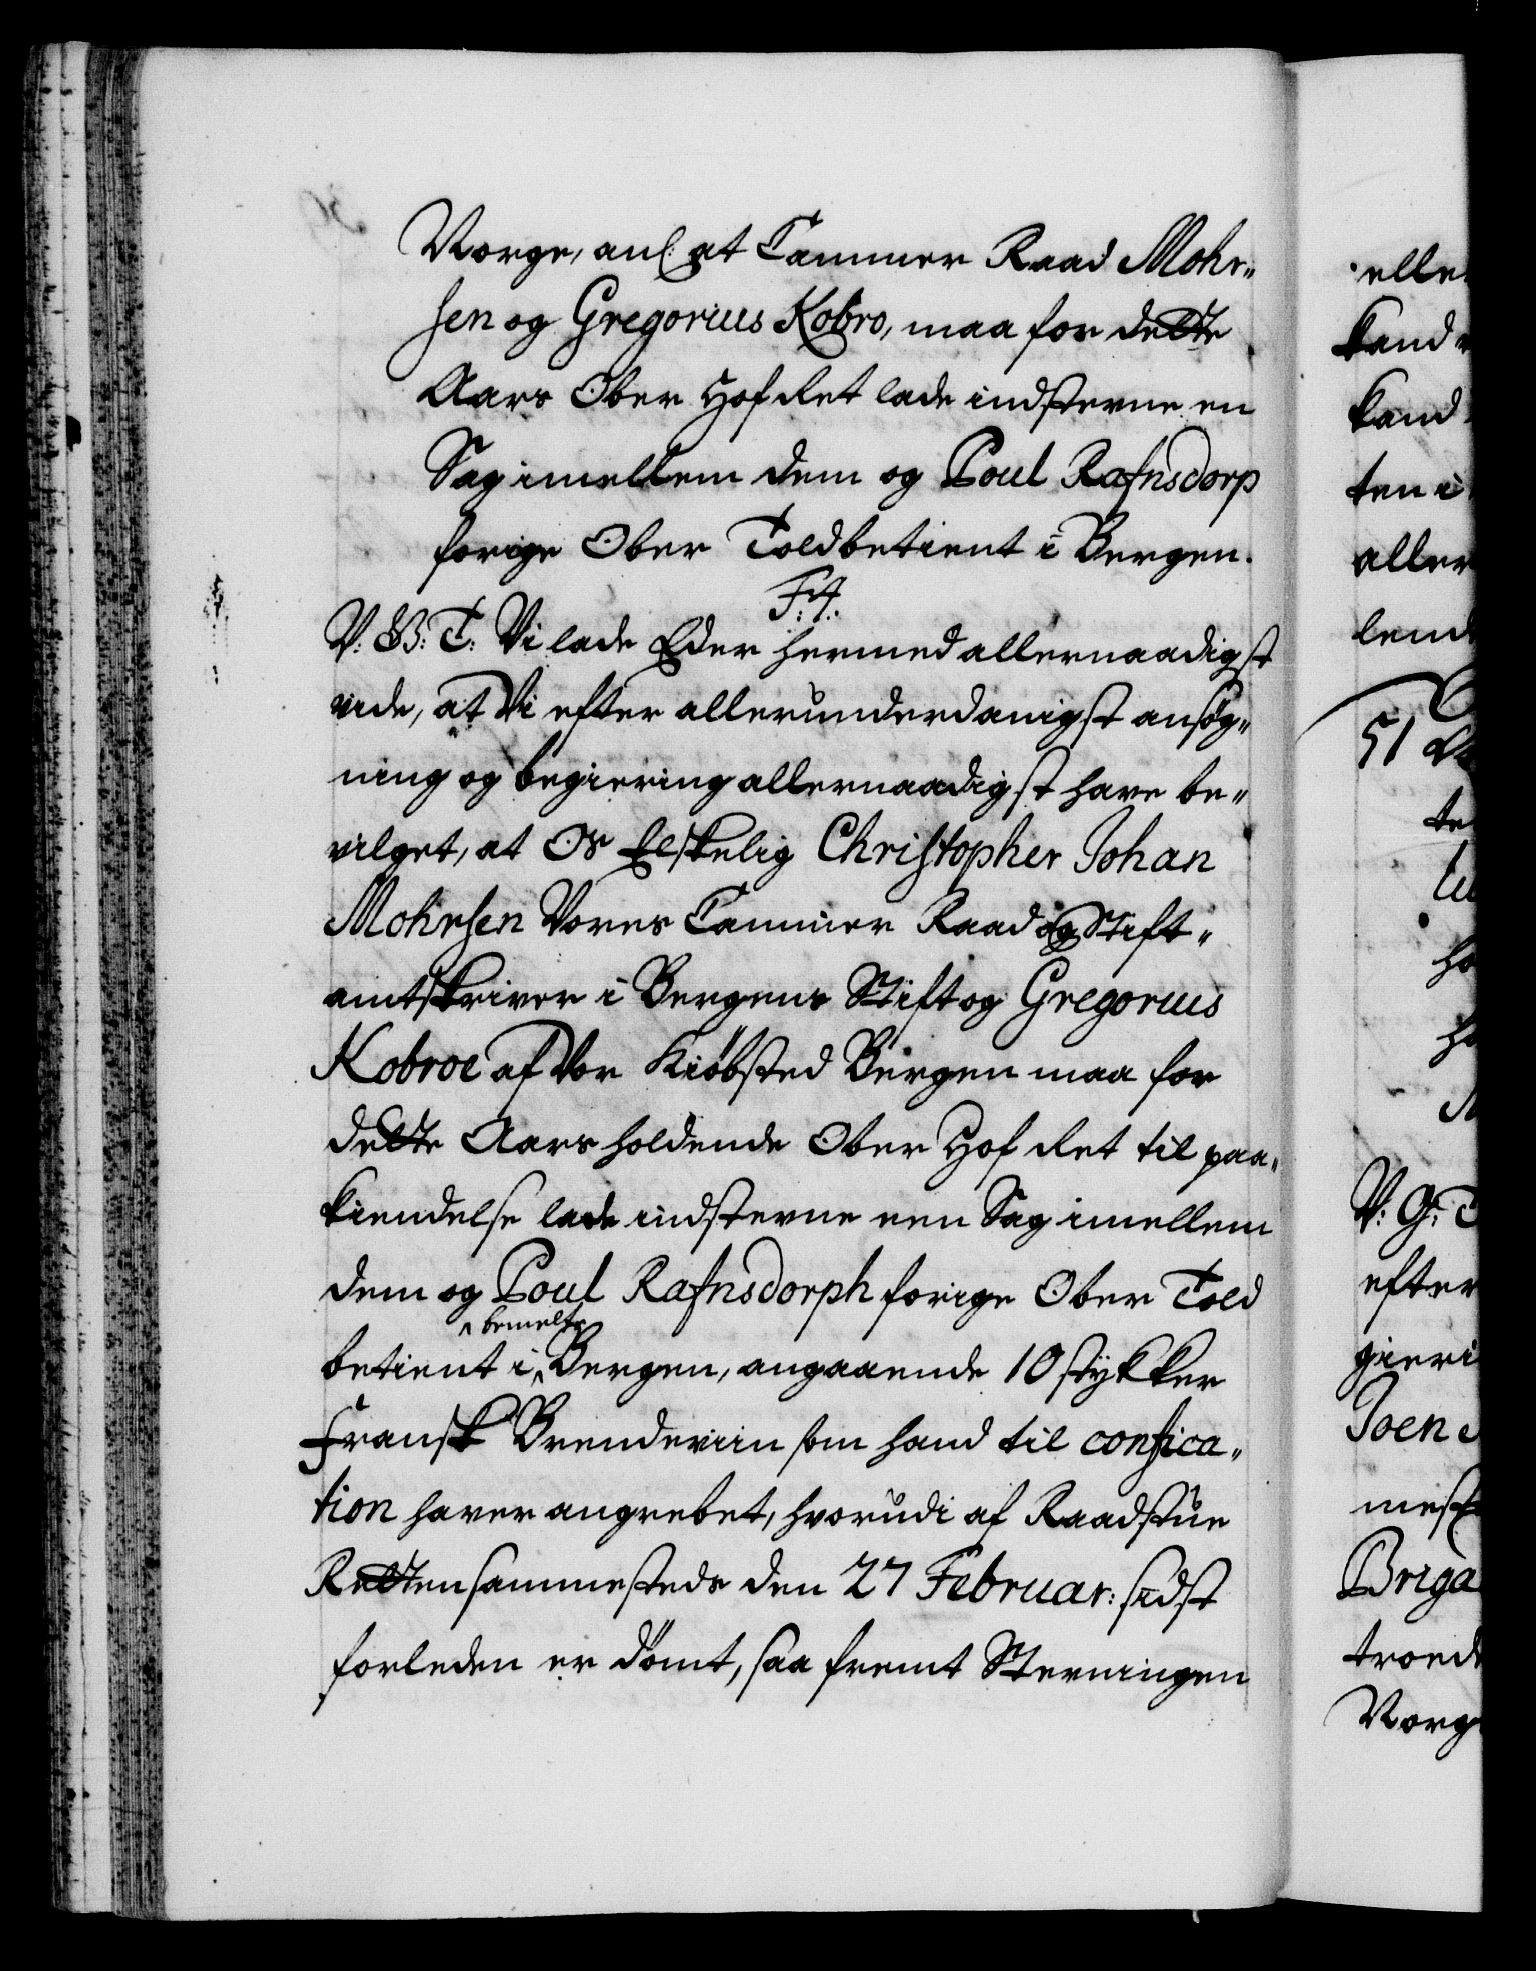 Norge, anl: at Cammer Raad Mohr-
sen og Gregorius Kobro, maa for dette
Aars Ober Hof Ret lade indstevne en
Sag imellem dem og Poul Rafnsdorp
forige Ober Toldbetient i Bergen.
F: 4.
V: G: T: Vi lade Eder hermed allernaadigst
vide, at Vi efter allerunderdanigst ansøg-
ning og begiering allernaadigst have be-
vilget, at Os Elskelig Christopher Johan
Mohrsen Vores Cammer Raad og Stift-
amtskriver i Bergens Stift og Gregorius
Kobroe af Vor Kiøbsted Bergen maa for
dette Aars holdende Ober Hof Ret til paa-
kiendelse lade indstevne een Sag imellem
dem og Poul Rafnsdorph forige Ober Told
bemelte
betient i Bergen, angaaende 10 stykker
Fransk Brendeviin som hand til confica-
tion haver angrebet, hvorudi af Raadstue
Retten sammesteds den 27 Februar: sidst
forleden er dömt, saa fremt Stevningen
elle
kand
kand
ten i
aller
lend
51
te
ho
V: G: T
efter
gieri
Joen
mest
Briga
troed
Norg